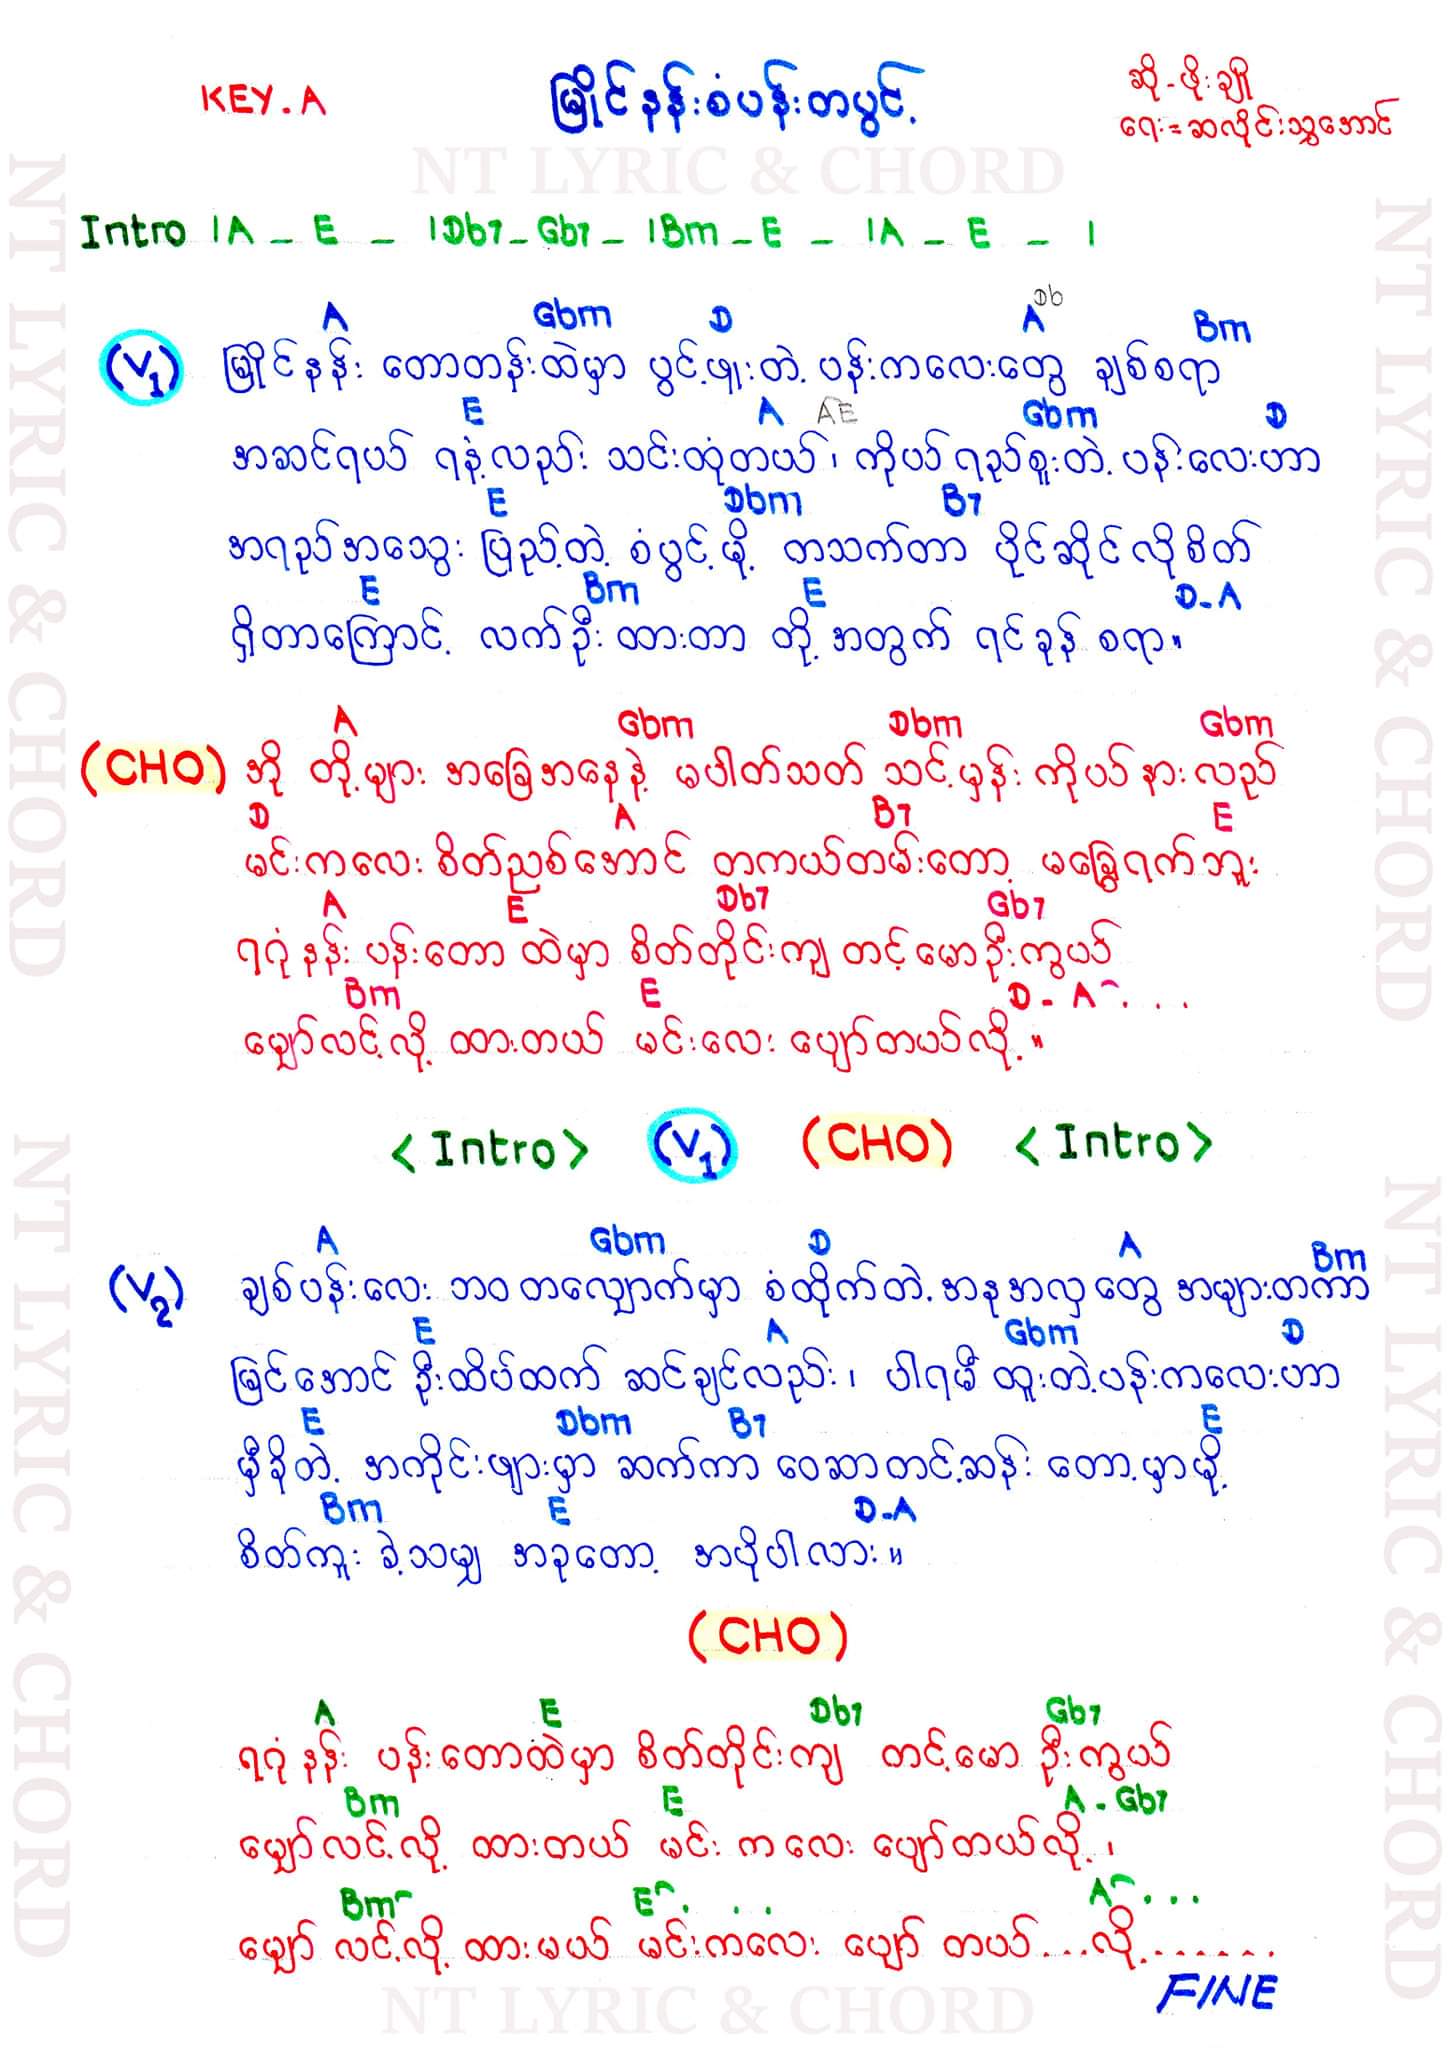 KEY.A
မြိုင်နန်းစံပန်းတပွင့်
ဆို-ဖိုးချို
ရေး=ဆလိုင်းသွအောင်
NT LYRIC & CHORD
Intro |A _ E _ |Db7_Gb7_ |Bm_E _ |A _ E _ |
A Gbm D A Db Bm
(V1) မြိုင်နန်း တောတန်းထဲမှာ ပွင့်ဖူးတဲ့ ပန်းကလေးတွေ ချစ်စရာ
E A AE Gbm D
အဆင်ရယ် ရနံ့လည်း သင်းထုံတယ်၊ ကိုယ်ရည်စူးတဲ့ ပန်းလေးဟာ
E Dbm B7
အရည်အသွေး ပြည့်တဲ့ စံပွင့်မို့ တသက်တာ ပိုင်ဆိုင်လိုစိတ်
E Bm E D-A
ရှိတာကြောင့် လက်ဦးထားတာ တို့အတွက် ရင်ခုန်စရာ။
A Gbm Dbm Gbm
(CHO) အို တို့များ အခြေအနေနဲ့ မပါတ်သတ် သင့်မှန်း ကိုယ်နားလည်
D A B7 E
မင်းကလေး စိတ်ညစ်အောင် တကယ်တမ်းတော့ မခြွေရက်ဘူး
A E Db7 Gb7
ရဂုံနန်း ပန်းတောထဲမှာ စိတ်တိုင်းကျ တင့်မောဦးကွယ်
Bm E D - A . . .
မျှော်လင့်လို့ ထားတယ် မင်းလေး ပျော်တယ်လို့။
<Intro> (V1) (CHO) <Intro>
A Gbm D A Bm
(V2) ချစ်ပန်းလေး ဘဝတလျှောက်မှာ စံထိုက်တဲ့ အနုအလှတွေ အများတကာ
E A Gbm D
မြင်အောင် ဦးထိပ်ထက် ဆင်ချင်လည်း၊ ပါရမီ ထူးတဲ့ပန်းကလေးဟာ
E Dbm B7 E
မှီခိုတဲ့ အကိုင်းဖျားမှာ ဆက်ကာ ဝေဆာတင့်ဆန်း တော့မှာမို့
Bm E D-A
စိတ်ကူး ခဲ့သမျှ အခုတော့ အပိုပါလား။
(CHO)
A E Db7 Gb7
ရဂုံနန်း ပန်းတောထဲမှာ စိတ်တိုင်းကျ တင့်မော ဦးကွယ်
Bm E A - Gb7
မျှော်လင့်လို့ ထားတယ် မင်း ကလေး ပျော်တယ်လို့၊
Bm E . . . A . . .
မျှော် လင့်လို့ ထားမယ် မင်းကလေး ပျော် တယ်....လို့.......
FINE
NT LYRIC & CHORD
NT LYRIC & CHORD
NT LYRIC & CHORD
NT LYRIC & CHORD
NT LYRIC & CHORD
NT LYRIC & CHORD